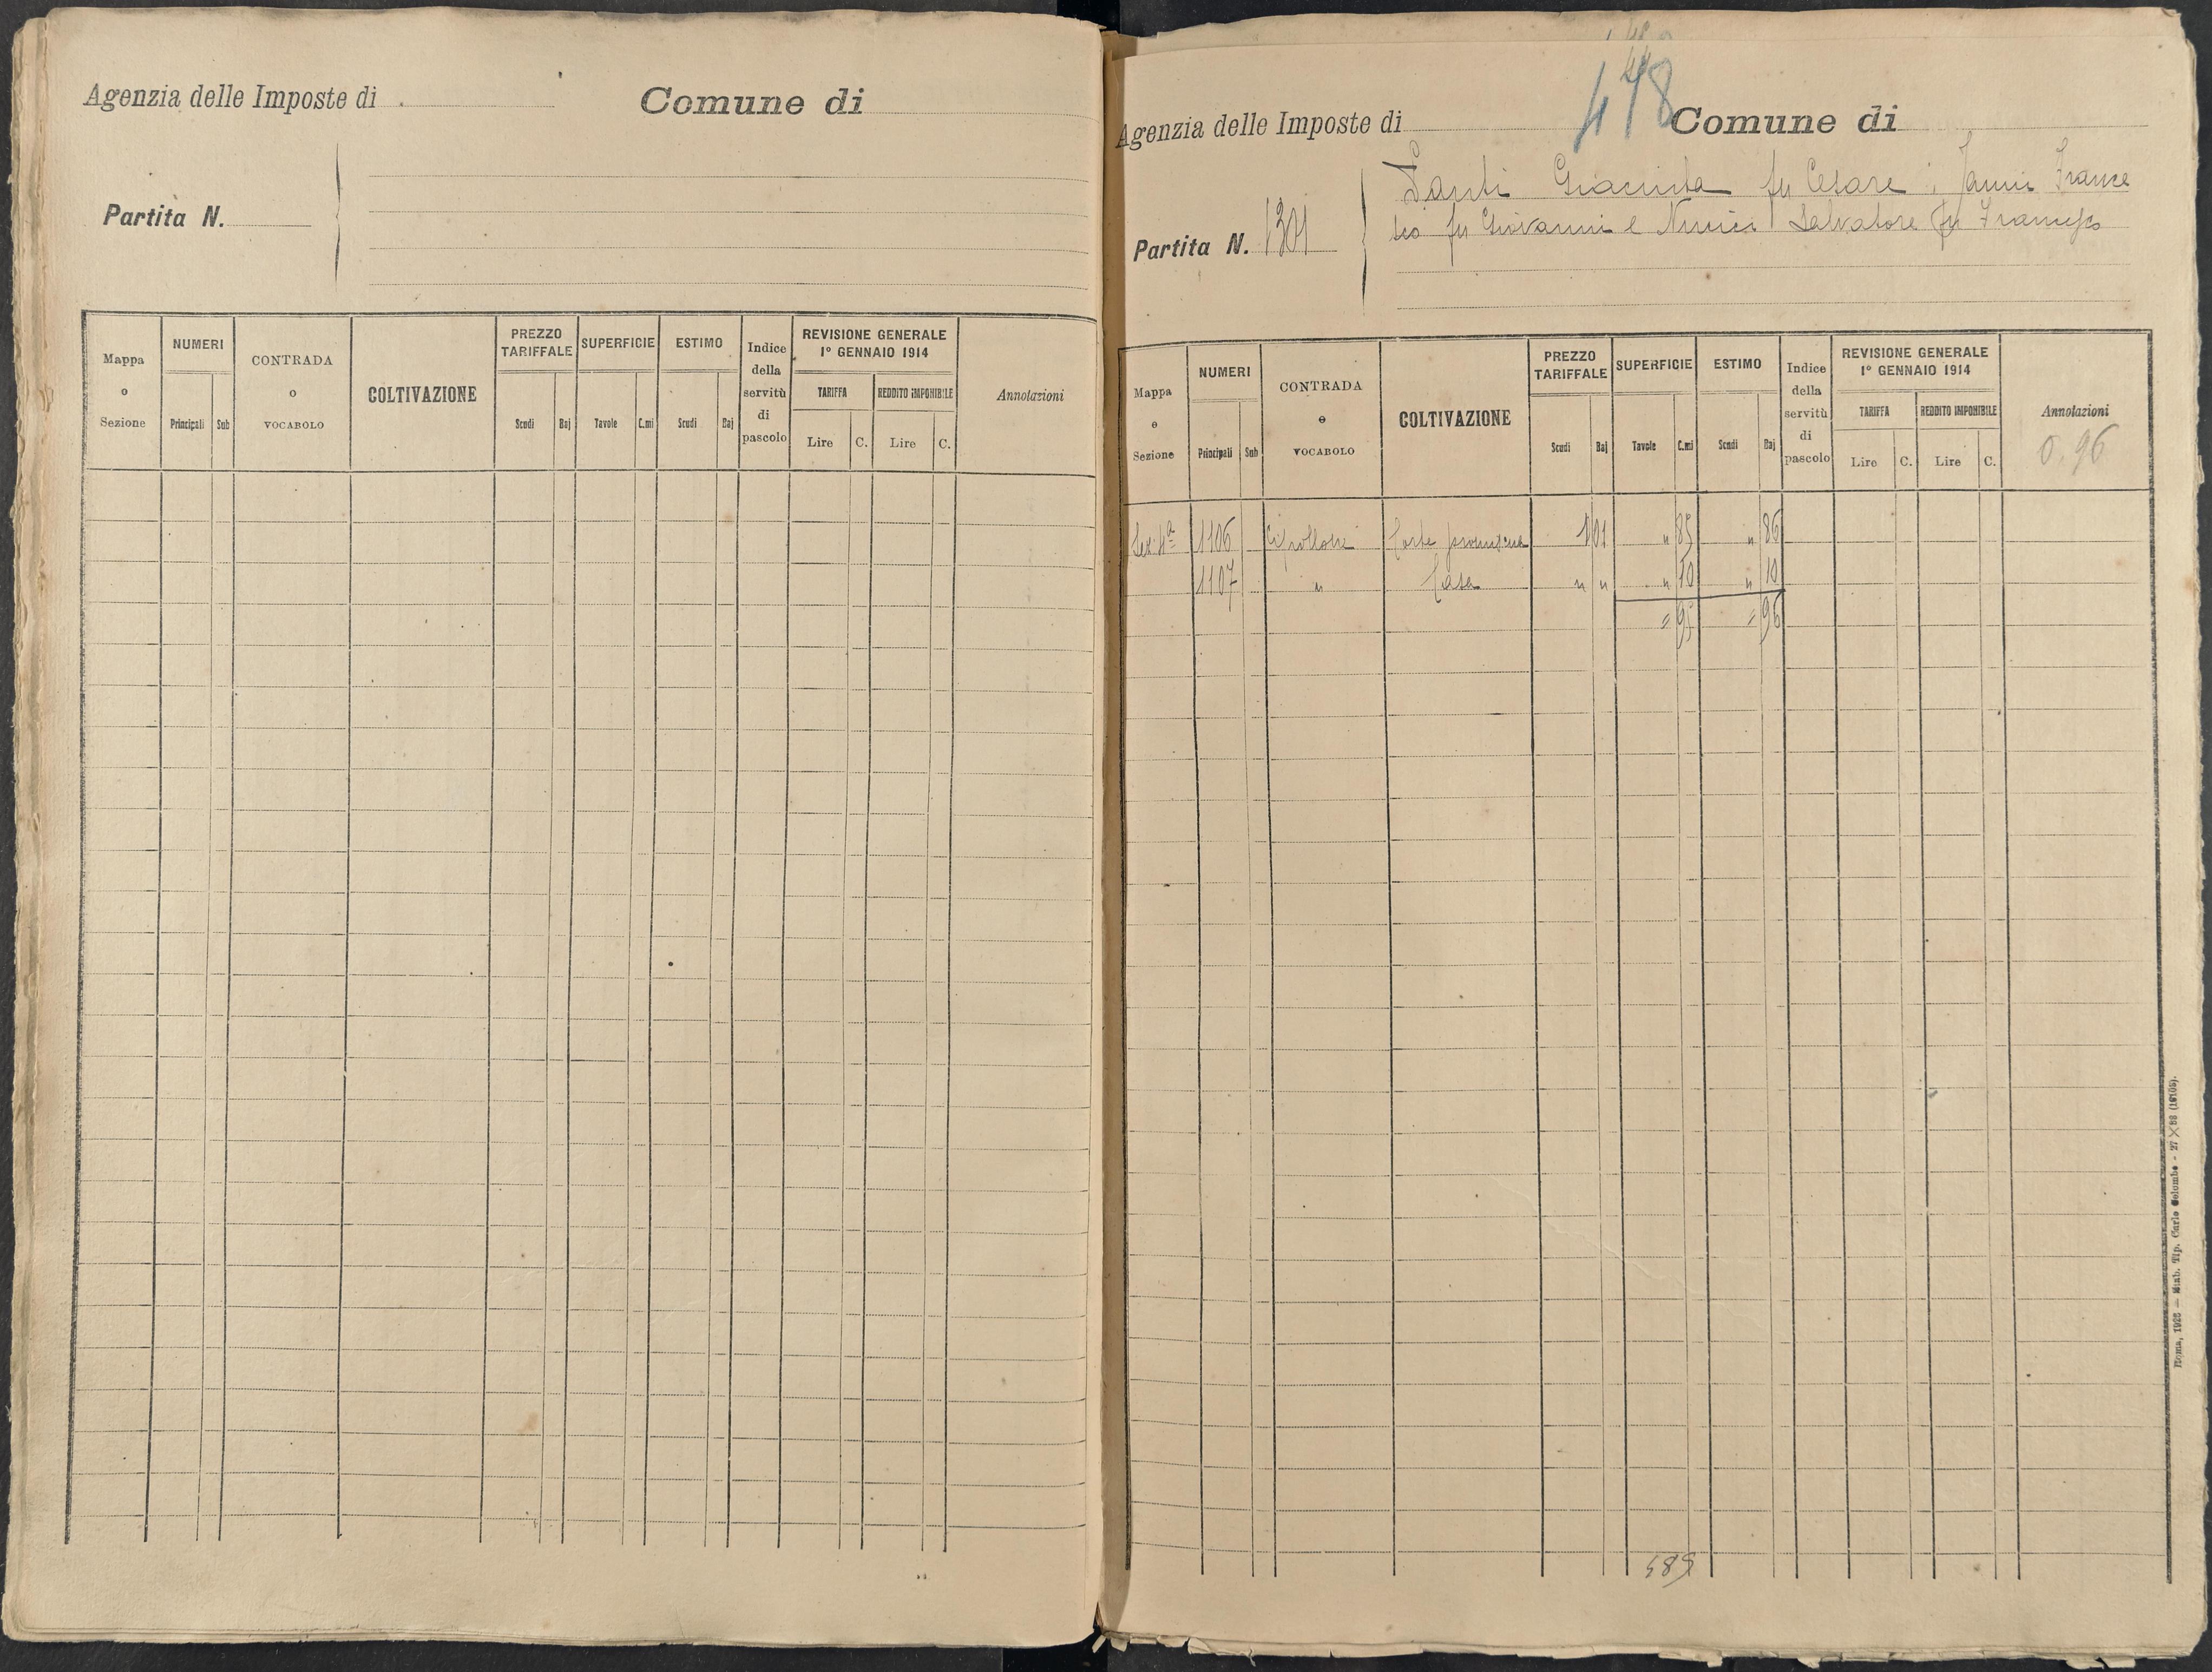 Agenzia delle Imposte di
Comune di
Partita N.
Mappa o Sezione
NUMERI
Principali
Sub
CONTRADA o VOCABOLO
COLTIVAZIONE
PREZZO TARIFFALE
Scudi
Baj
SUPERFICIE
Tavole
C.mi
ESTIMO
Scudi
Baj
Indice della servitù di pascolo
REVISIONE GENERALE
1º GENNAIO 1914
TARIFFA
REDDITO IMPONIBILE
Lire
C.
Lire
C.
Annotazioni
448
Agenzia delle Imposte di
Comune di
Giacinta fu Cesare
fu Giovanni e Salvatore fu Francesco
Partita N. 1301
Mappa o Sezione
NUMERI
Principali
Sub
CONTRADA o VOCABOLO
COLTIVAZIONE
PREZZO TARIFFALE
Scudi
Baj
SUPERFICIE
Tavole
C.mi
ESTIMO
Scudi
Baj
Indice della servitù di pascolo
REVISIONE GENERALE
1º GENNAIO 1914
TARIFFA
REDDITO IMPONIBILE
Lire
C.
Lire
C.
Annotazioni
0.96
Sez. 4ª 1106 Corte 1 01 " 85 " 86
1107 " Casa " " " 10 " 10
= 95 = 96
Roma, 1925 — Stab. Tip. Carlo Colombo - 27 X 88